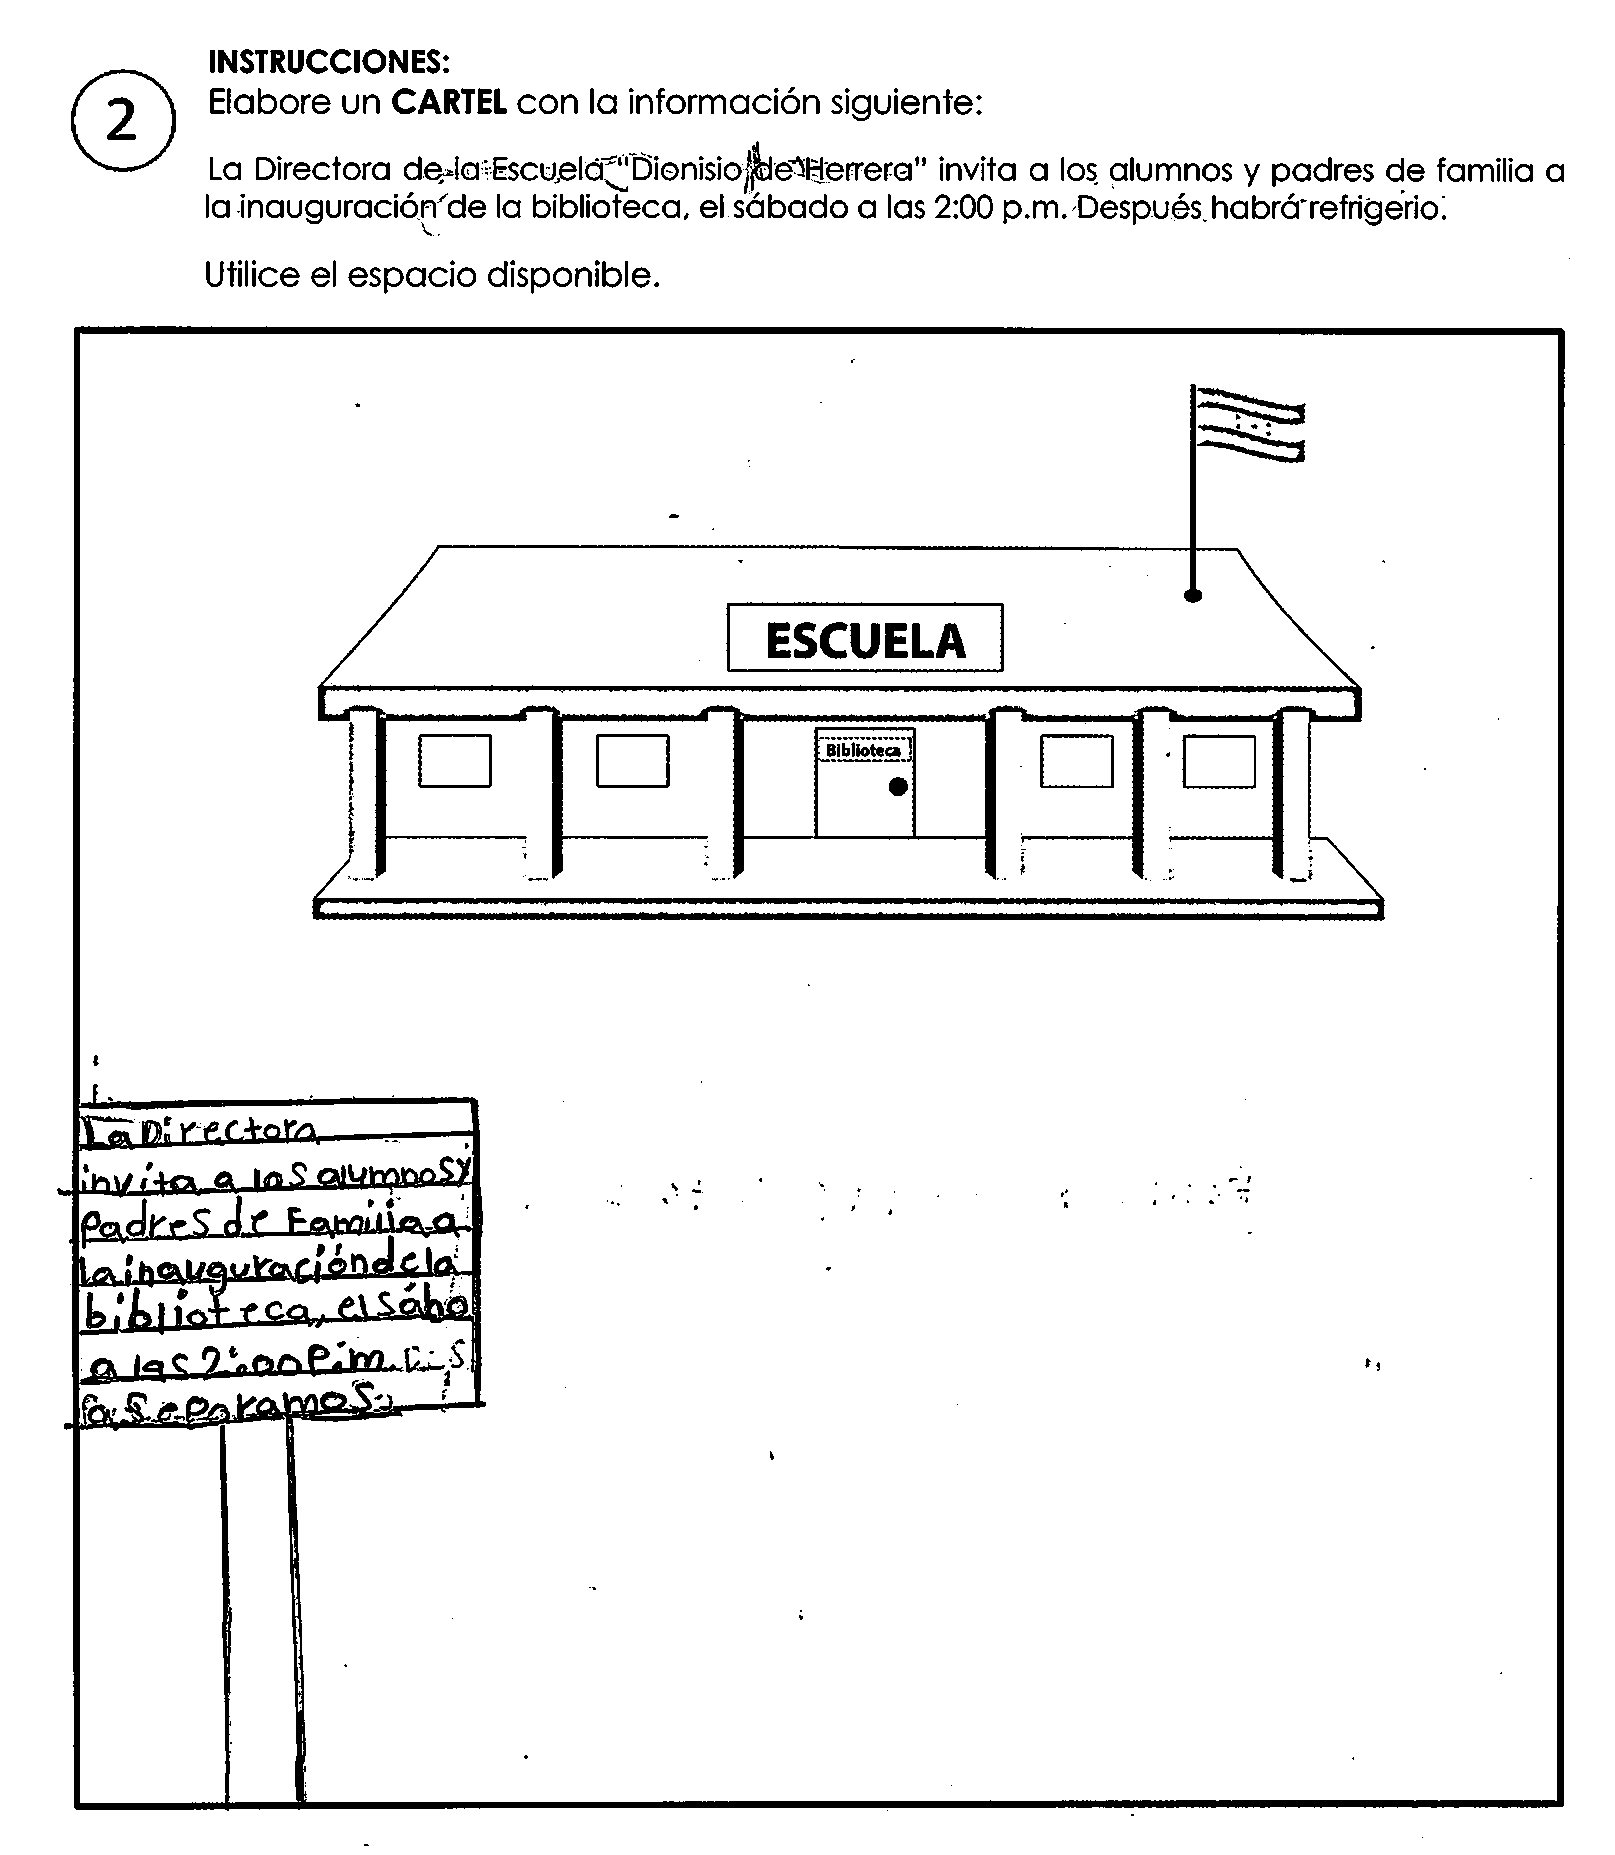 INSTRUCCIONES:
2
Elabore un CARTEL con la información siguiente:
La Directora de la Escuela "Dionisio de Herrera" invita a los alumnos y padres de familia a
la inauguración de la biblioteca, el sábado a las 2:00 p.m. Después habrá refrigerio.
Utilice el espacio disponible.
ESCUELA
Biblioteca
La Directora
invita a los alumnos y
Padres de Familia a
la inauguración de la
biblioteca, el sábo
a las 2:00 P.m.
separamos.